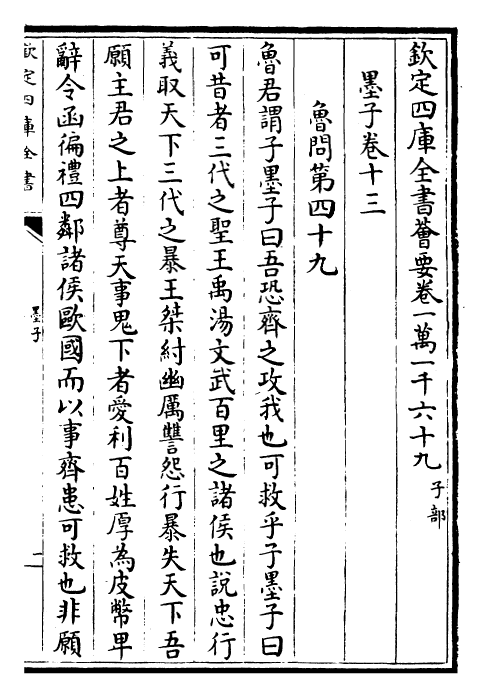 欽定四庫全書薈要卷一萬一千六十九子部
墨子卷十三
魯問第四十九
魯君謂子墨子曰吾恐齊之攻我也可救乎子墨子曰
可昔者三代之聖王禹湯文武百里之諸侯也說忠行
義取天下三代之暴王桀紂幽厲讐怨行暴失天下吾
願主君之上者尊天事鬼下者愛利百姓厚為皮幣卑
辭令函徧禮四鄰諸侯歐國而以事齊患可救也非願
欽定四庫全書
墨子